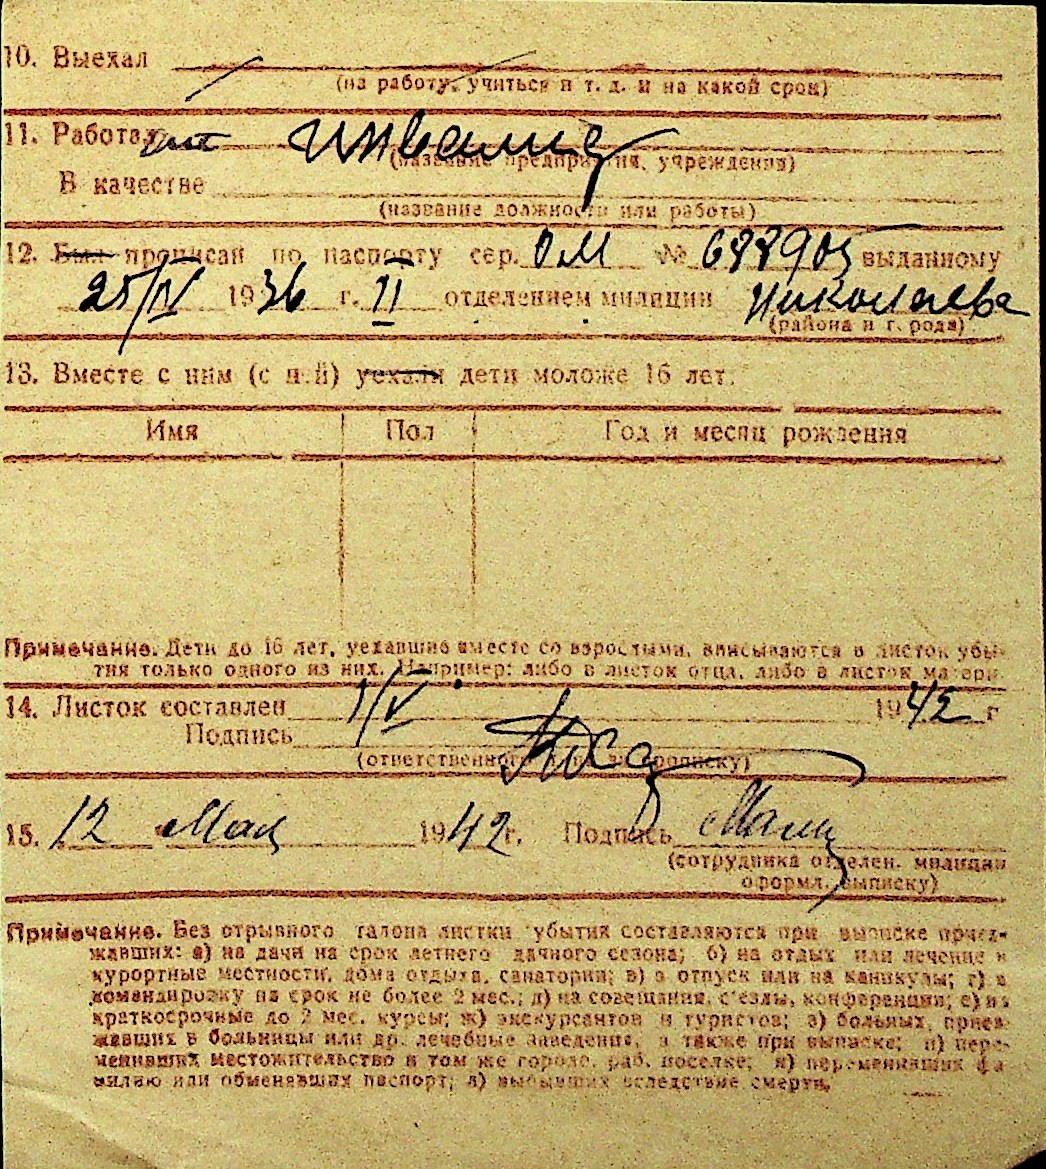 10. Выехал
(на работу, учиться и т. д. и на какой срок)
11. Работал инвалид
(название предприятия, учреждения)
В качестве
(название должности или работы)
12. Был прописан по паспорту сер. ОМ № 688905 выданному
25/IV 1936 г. II отделением милиции Николаева
(района и города)
13. Вместе с ним (с ней) уехали дети моложе 16 лет.
Имя Пол Год и месяц рождения
Примечание. Дети до 16 лет, уехавшие вместе со взрослыми, вписываются в листок убы-
тия только одного из них. Например: либо в листок отца, либо в листок матери.
14. Листок составлен 1/V 1942 г
Подпись
(ответственного за прописку)
15. 12 Мая 1942 г. Подпись
(сотрудника отделен. милиции
оформл. выписку)
Примечание. Без отрывного талона листки убытия составляются при выписке приез-
жавших: а) на дачи на срок летнего дачного сезона; б) на отдых или лечение в
курортные местности, дома отдыха, санатории; в) в отпуск или на каникулы; г) в
командировку на срок не более 2 мес.; д) на совещания, с'езды, конференции; е) на
краткосрочные до 2 мес. курсы; ж) экскурсантов и туристов; з) больных, приез-
жавших в больницы или др. лечебные заведения, а также при выписке; и) пере-
менивших местожительство в том же городе, раб. поселке; к) переменивших фа-
милию или обменявших паспорт; л) выбывших вследствие смерти.